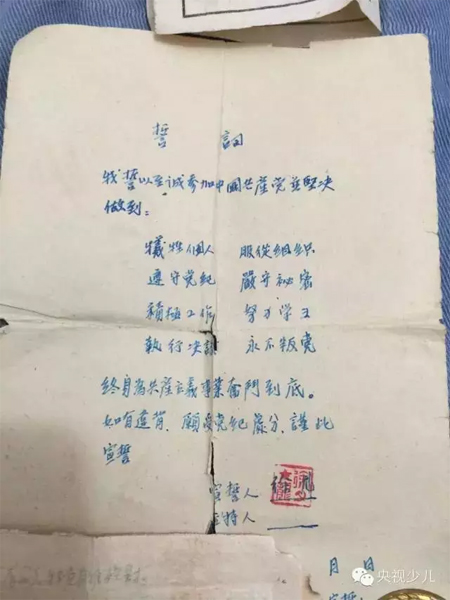 誓 词
我誓以至诚参加中国共産党並堅决
做到：
犧牲個人 服從組织
遵守党纪 嚴守祕密
積极工作 努力学习
執行决議 永不叛党
终身為共産主義事業奮鬥到底。
如有違背，願受党纪嚴分，謹此
宣誓
宣誓人
主持人
月 日
央视少儿